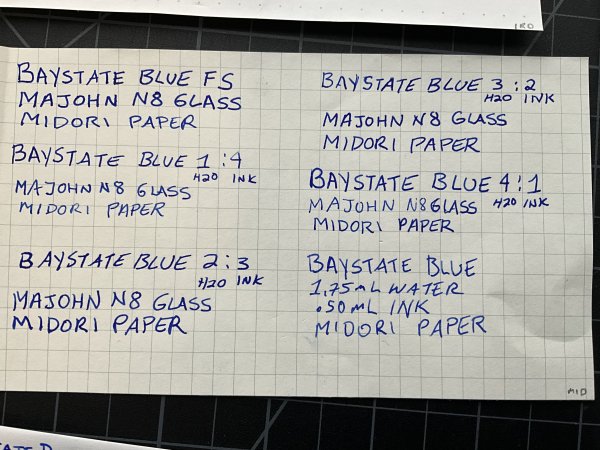 1RO
BAYSTATE BLUE FS
MAJOHN N8 GLASS
MIDORI PAPER
BAYSTATE BLUE 1:4
H2O INK
MAJOHN N8 GLASS
MIDORI PAPER
BAYSTATE BLUE 2:3
H2O INK
MAJOHN N8 GLASS
MIDORI PAPER
BAYSTATE BLUE 3:2
H2O INK
MAJOHN N8 GLASS
MIDORI PAPER
BAYSTATE BLUE 4:1
MAJOHN N8 GLASS H2O INK
MIDORI PAPER
BAYSTATE BLUE
1.75mL WATER
.50mL INK
MIDORI PAPER
MID